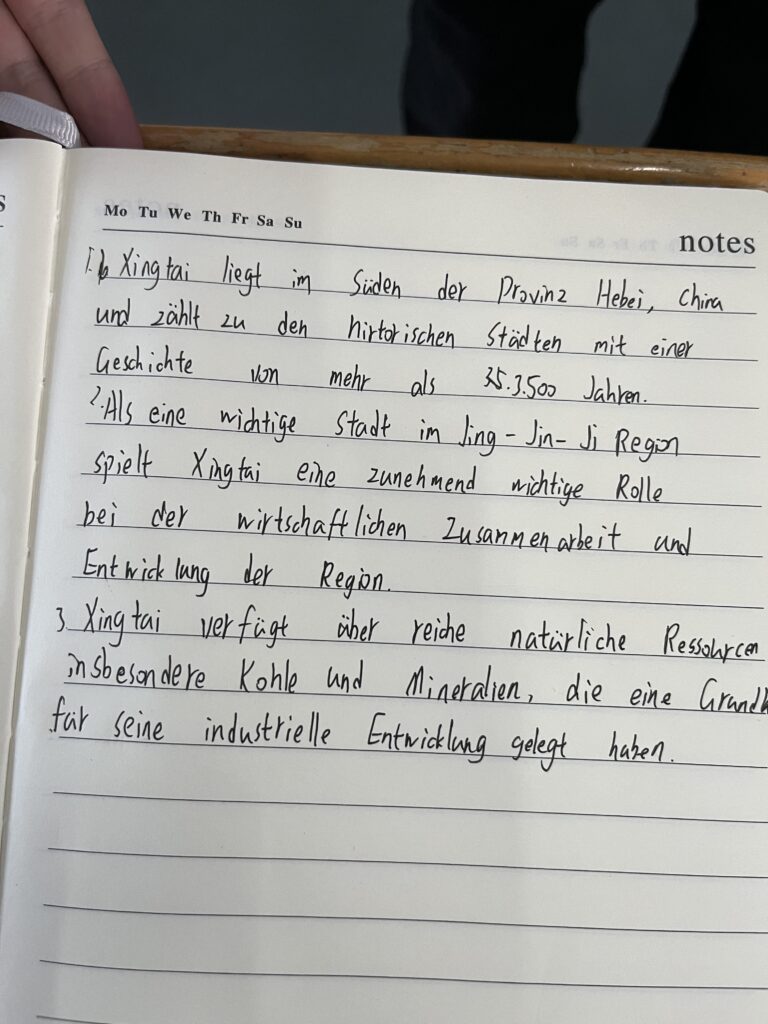 Mo Tu We Th Fr Sa Su
notes
1. Xingtai liegt im Süden der Provinz Hebei, China
und zählt zu den hirtorischen Städten mit einer
Geschichte von mehr als 35.3.500 Jahren.
2. Als eine wichtige Stadt im Jing-Jin-Ji Region
spielt Xingtai eine zunehmend wichtige Rolle
bei der wirtschaftlichen Zusammenarbeit und
Entwicklung der Region.
3. Xingtai verfügt über reiche natürliche Ressourcen
insbesondere Kohle und Mineralien, die eine Grundl
für seine industrielle Entwicklung gelegt haben.